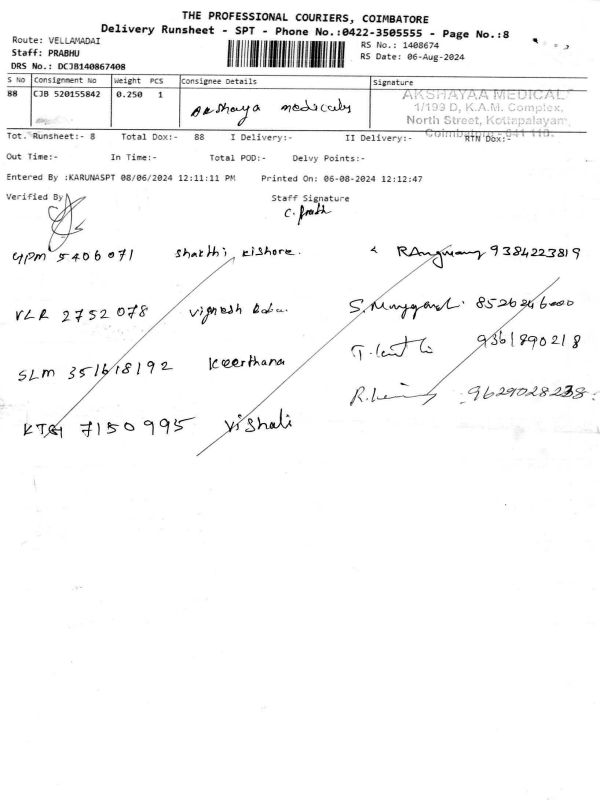 THE PROFESSIONAL COURIERS, COIMBATORE
Delivery Runsheet - SPT - Phone No.:0422-3505555 - Page No.:8
Route: VELLAMADAI
RS No.: 1408674
Staff: PRABHU
RS Date: 06-Aug-2024
DRS No.: DCJB140867408
S No Consignment No Weight PCS Consignee Details Signature
88 CJB 520155842 0.250 1 Akshaya medicals
AKSHAYAA MEDICALS
1/199 D, K.A.M. Complex,
North Street, Kottapalayam,
Coimbatore - 641 110.
Tot. Runsheet:- 8 Total Dox:- 88 I Delivery:- II Delivery:- RTN Dox:-
Out Time:- In Time:- Total POD:- Delvy Points:-
Entered By :KARUNASPT 08/06/2024 12:11:11 PM Printed On: 06-08-2024 12:12:47
Verified By Staff Signature
GPM 5406071 Shakthi kishore. 9384223819
VLR 2752078 Vignesh 8526346000
SLM 351618192 Keerthana 9361890218
7150995 Vishali 9629028238